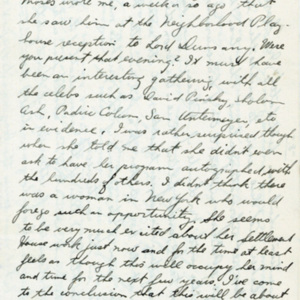 wrote me, a week or so ago that
she saw him at the Neighborhood Play-
house reception to Lord Dunsany. Were
you present that evening? It must have
been an interesting gathering with all
the celebs such as David Pinsky, Sholom
Ash, Padric Colum, Untermeyer, etc
in evidence. I was rather surprised though
when she told me that she didn't even
ask to have her program autographed with
the hundreds of others. I didn't think there
was a woman in New York who would
forego such an opportunity. She seems
to be very much excited about her Settlement
House work just now and for the time at least
feels as though this will occupy her mind
and time for the next few years. I've come
to the conclusion that this will be about